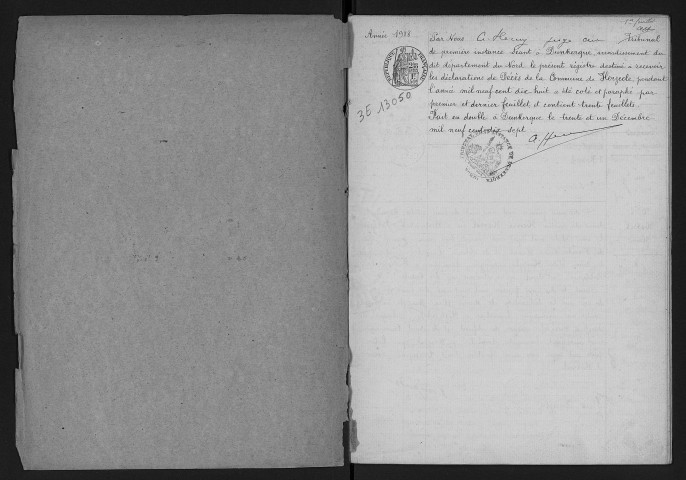 1er feuillet
Année 1918
Par Nous A. Henry juge au Tribunal
de première instance séant à Dunkerque, arrondissement du
dit département du Nord, le présent registre destiné à recevoir
les déclarations de Décès de la Commune de Herzeele, pendant
l'année mil neuf cent dix huit a été coté et paraphé par
premier et dernier feuillet et contient trente feuillets.
Fait en double à Dunkerque le trente et un Décembre
mil neuf cent dix sept.
3E 13050